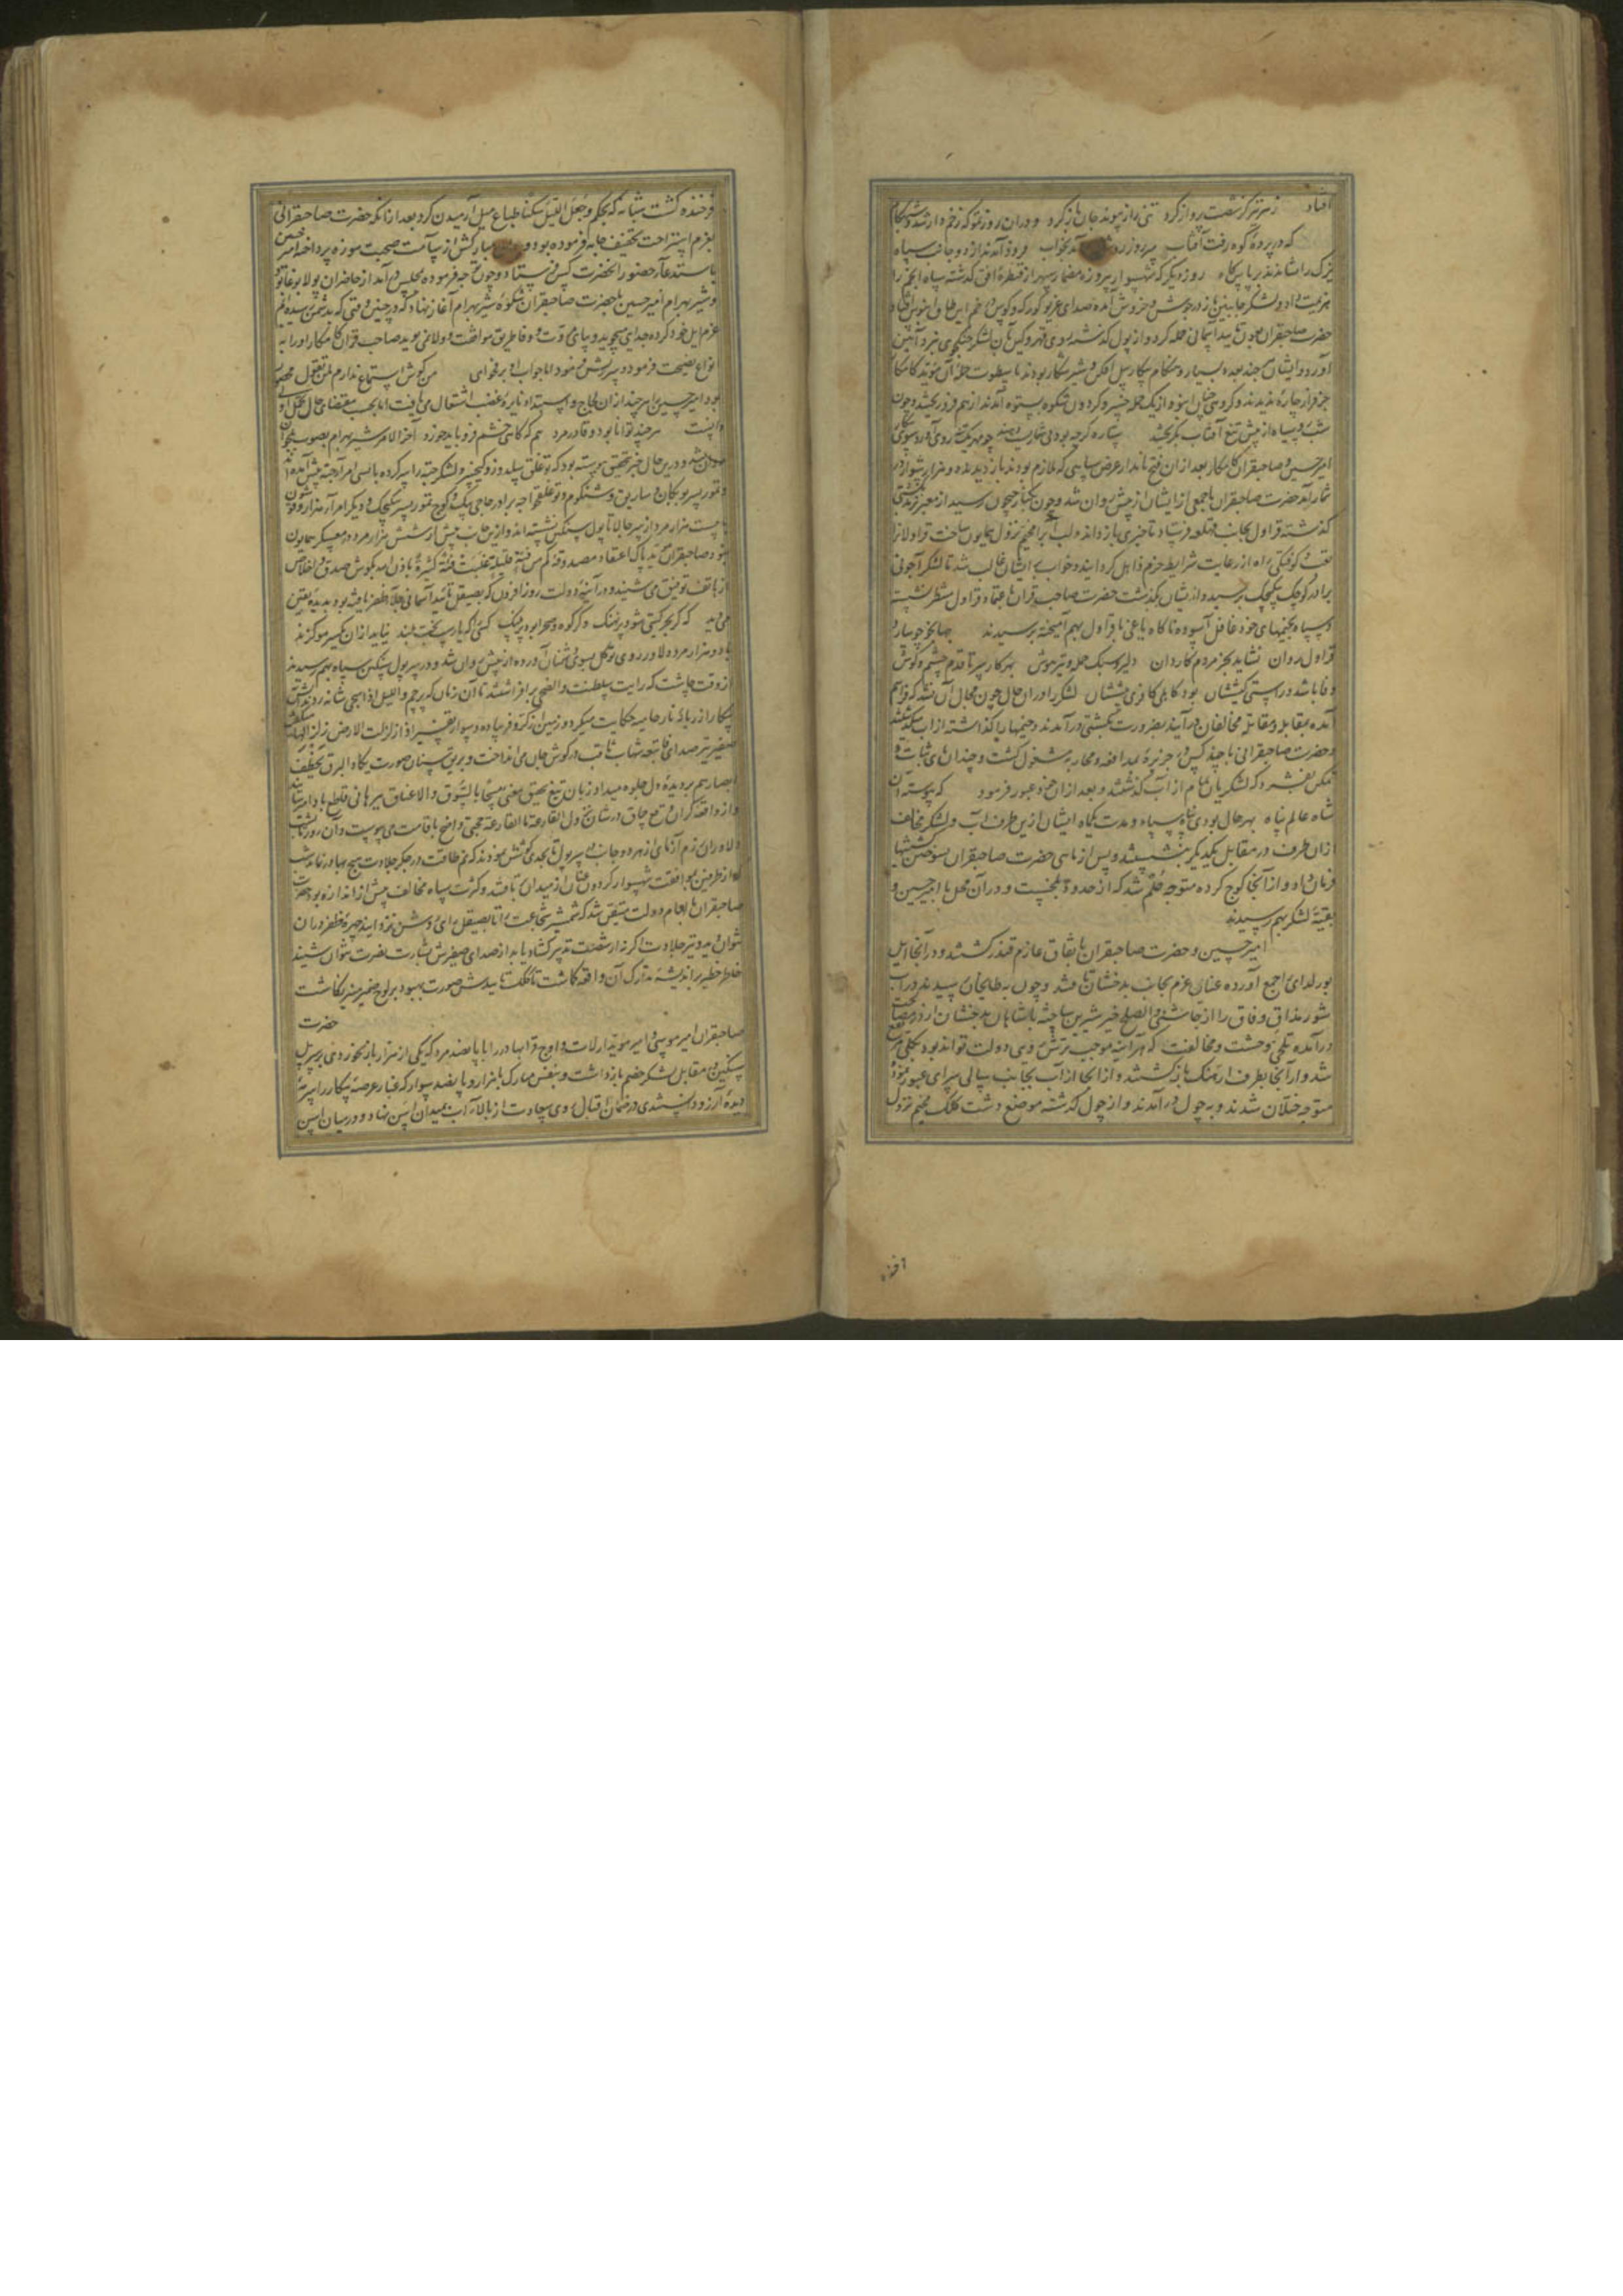 افتاد زهر تیر کز شصت پرواز کرد تنی را ز پیوند جان باز کرد و دران روز تموکه زخم دار شد و شبنگام
که در پردهٔ کوه رفت آفتاب سر روز آمد بخواب فرود آمدند از دو جانب سپاه
روز دیگر که شهسوار پیروزه مضمار سپهر از قنطرهٔ افق گذشته سپاه انجم را
هزیمت داد و لشکر جانبین باز در جوش و خروش آمده صدای غریو کورکه و کوس در خم این طاق آبنوس افتاد
حضرت صاحبقران بعون تایید آسمانی حمله کرد و از پول گذشته بسوی قهر و کین آن لشکر جنکجوی نبرد آیین
آورد و ایشان بسیار و هنگام پیکار پیل افکن و شیر شکار بودند با سطوت حملهٔ آن مؤید کامکار
جز فرار چاره ندیدند و از یک حمله خسرو کردون شکوه بستوه آمدند از هم فرو ریختند و چون
شب سیاه از پیش تیغ آفتاب بگریختند ستاره گرچه بود بی شمار چو مهر یکه روی آورد سوی
امیرحسین و صاحبقران کامکار بعد ازان فتح نامدار عرض سپاهی که ملازم بودند باز دیدند دو هزار سوار در
شمار آمد حضرت صاحبقران با جمعی از ایشان از پیش روان شد و چون بکنار جیحون رسید از معبر ترمذ بکشتی
گذشته قراول بجانب قهلغه فرستاد تا خبری باز داند و لب آب را مخیم نزول همایون ساخت قراولان را
تعب و کوفتگی راه از رعایت شرایط حزم ذاهل گردانید و خواب بر ایشان غالب شد تا لشکر اجونی
برادر کوچک بیکیجک برسید و از ایشان بگذشت حضرت صاحب قران باعتماد قراول منتظر نشسته
و سپاه بخیمهای خود غافل آسوده ناکاه یاغی با قراول بهم آمیخته برسیدند
قراول روان نشاید بجز مردم کاردان دلیر و سبک حمله و تیز هوش بهر کار سر تا قدم چشم و گوش
وفا باشد و راستی کیششان بود کاهلی کافری پیششان لشکر را در آن حال چون مجال آن نشد که فراهم
آمده بمقابله و مقاتله مخالفان درآیند بضرورت بکشتی درآمدند و خیمها را گذاشته از آب بگذشتند
و حضرت صاحبقرانی با چند کس در جزیره بمدافعه و محاربه مشغول گشت و چندان پای ثبات و
تمکن بیفشرد که لشکریان تمام از آب گذشتند و بعد ازان خود عبور فرمود که پیوسته آن
شاه عالم پناه بهر حال بودی پناه سپاه و مدت یکماه ایشان ازین طرف آب و لشکر مخالف
ازان طرف در مقابل یکدیگر بنشستند و پس از ماهی حضرت صاحبقران بسوختن کشتیها
فرمان داد و از آنجا کوچ کرده متوجه خلم شد که از حدود بلخست و در آن محل با امیر حسین و
بقیهٔ لشکر بهم رسیدند
امیر حسین و حضرت صاحبقران باتفاق عازم قندز گشتند و در آنجا ایل
بورلدای را جمع آورده عنان عزم بجانب بدخشان تافتند و چون به طایخان رسیدند
مذاق وفاق را از چاشنی والصلح خیر شیرین ساخته با شاهان بدخشان از در مصالحت
درآمده تلخی وحشت و مخالفت که هرآینه موجب ترش روی دولت تواند بود بکلی مرتفع
شد و از آنجا بطرف ارهنگ بازگشتند و از آنجا از آب بجانب سالی سرای عبور نموده
متوجه ختلان شدند و به چول درآمدند و از چول گذشته موضع دشت کلک مخیم نزول
افزوده
فرخنده گشت شبانه که بحکم و جعل اللیل سکنا طباع میل آرمیدن کرد بعد از آنکه حضرت صاحبقرانی
بعزم استراحت تخفیف جامه فرموده بود و مبارکش از سآمت صحبت موزه پرداخته امیر حسین
باستدعاء حضور آنحضرت کس فرستاد و چون توجه فرموده بمجلس درآمد از حاضران پولاد بوغا بود
و شیر بهرام امیر حسین با حضرت صاحبقران شکوهٔ شیر بهرام آغاز نهاد که در چنین وقتی که بدشمن رسیده‌ایم
عزم ایل خود کرده جدایی میجوید و پای مروت و وفا طریق موافقت و ولا نمی‌پوید صاحب قران کامکار او را به
انواع نصیحت فرمود و پرسش نمود اما جواب او بر فحوای من گوش استماع ندارم لمن تقول
بود امیر حسین را هرچند ازان لجاج و استبداد نایرهٔ غضب اشتعال می‌یافت اما بحسب مقتضای حال تحمل اولی
دانست هرچند توانا بود و قادر مرد هم گه گاهی خشم فرو باید خورد آخر الامر شیر بهرام بصوب ختلان
روان شد و درین حال خبر تحقیق پیوسته بود که توغلق سلدوز و کیخسرو لشکر جته را سر کرده با بسی امرا جته پیش آمده‌اند
و تمور پسر بوبکان و ساریق و شنکوم و توغلق خواجه برادر حاجی بیک و کوچ تمور پسر بیکیجک و دیگر امراء هزار و قوشون
با بیست هزار مرد از سر جالا تا پول سنگین نشسته‌اند و ازین جانب بیش از شش هزار مرد در معسکر همایون
نبود صاحبقران مؤید پاک اعتقاد مصدوقهٔ کم من فئة قلیلة غلبت فئة کثیرة باذن الله بگوش صدق و اخلاص
از هاتف توفیق می‌شنید و در آینهٔ دولت روز افزون که بصیقل تأیید آسمانی جلاء ظفر یافته بود بدیدهٔ یقین
می‌دید که گر بحر گیتی شود پر نهنگ وگر کوه و صحرا بود پر پلنگ کسی را که یار است بخت بلند نیاید ازان یکسر مو گزند
با دو هزار مرد دلاور روی توکل بسوی دشمنان آورده از پیش روان شد و در سر پول سنگین سپاه بهم رسیدند
از وقت چاشت که رایت سلطنت والضحی برافراشتند تا آن زمان که پرچم واللیل اذا سجی شانه زدند آتش
پیکار از زبانهٔ نار حامیه حکایت میکرد و زمین از کر و فر پیاده و سوار تفسیر اذا زلزلت الارض زلزالها
صفیر تیر صدای فاتبعه شهاب ثاقب در گوش جان می‌انداخت و بریق سنان صورت یکاد البرق یخطف
ابصارهم بر دیدهٔ دل جلوه میداد و زبان تیغ بتحقیق معنی مسحا بالسوق والاعناق برهانی قاطع بادا می‌رسانید
و از واقعهٔ گران و وقع چماق در شان نزول القارعة ما القارعة حجتی واضح باقامت می‌پیوست و آن روز تا شب
دلاوران رزم آزمای از هر دو جانب بر سر پول تا بحدی کوشش نمودند که نم طاقت در جگر جلادت هیچ بهادر نماند شب
از طرفین بموافقت شهسوار گردون عنان از میدان بتافتند و کثرت سپاه مخالف بیش از اندازه بود حضرت
صاحبقران بالهام دولت متیقن شد که شمشیر شجاعت را تا بصیقل رای روشن نزدایند چهرهٔ ظفر در آن
نتوان دید و تیر جلادت اگر نه از شصت تدبیر گشاد یابد از صدای صفیرش بشارت نصرت نتوان شنید
خاطر خطیر بر اندیشهٔ تدارک آن واقعه گماشت تا کلک تاییدش صورت بهبود بر لوح ضمیر منیر نگاشت
حضرت
صاحبقران امیر موسی و امیر مؤید ارلات و اوچ قرا بهادر را با پانصد مرد که یکی از هزار باز نخوردی بر سر پل
سنگین در مقابل لشکر خصم بازداشت و بنفس مبارک با هزار و پانصد سوار که غبار عرصهٔ پیکار را سرمهٔ
دیدهٔ آرزو دانستندی در ضمان اقبال روی سعادت از بالاء آب بمیدان اسن نهاد و در میان اسن